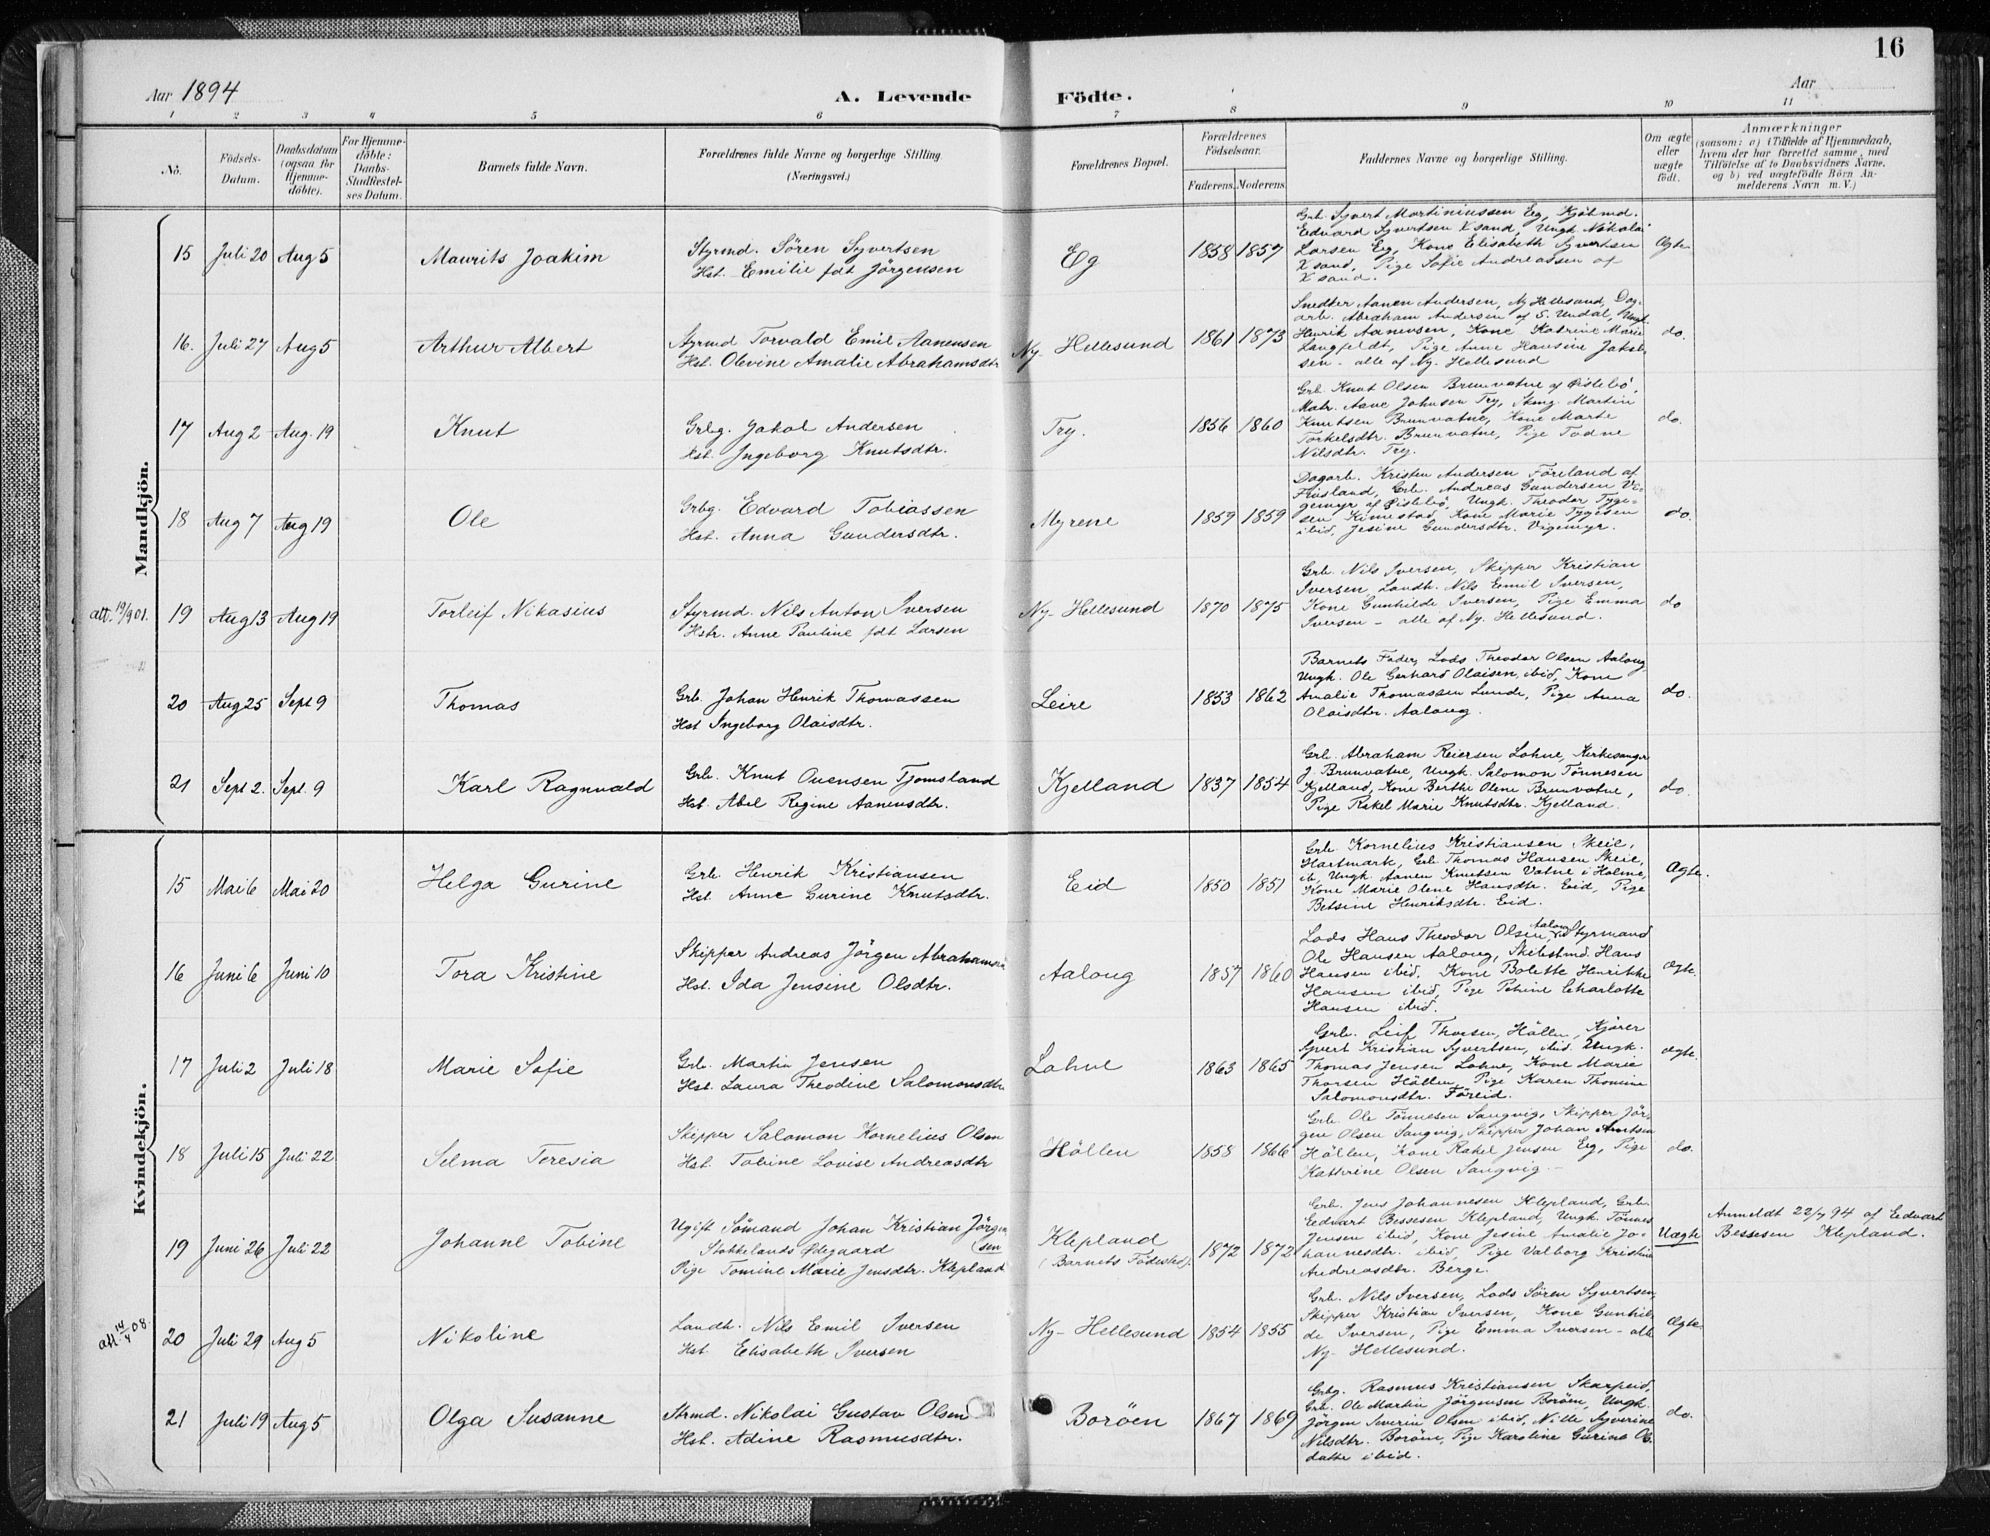 16
Aar 1894
A. Levende Födte.
Aar
1 2 3 4 5 6 7 8 9 10 11
No.
Födsels-Datum.
Daabsdatum (ogsaa for Hjemme-döbte).
For Hjemme-döbte: Daabs-Stadfæstel-ses Datum.
Barnets fulde Navn.
Forældrenes fulde Navne og borgerlige Stilling (Næringsvei.)
Forældrenes Bopæl.
Forældrenes Födselsaar.
Faderens. Moderens.
Faddernes Navne og borgerlige Stilling.
Om ægte eller uægte födt.
Anmærkninger
(saasom: a) i Tilfælde af Hjemmedaab,
hvem der har forrettet samme, med
Tilföielse af to Daabsvidners Navne.
og b) ved uægtefödte Börn An-
melderens Navn m. V.)
Mandkjön.
15 Juli 20 Aug 5 Maurits Joakim
Styrmd. Sören Syvertsen
Hst. Emilie fdt Jörgensen
Eg 1858 1857
Grb. Syvert Martiniussen Eg, Kjöbmd.
Edvard Syvertsen X sand, Ungk Nikolai
Larsen Eg, Kone Elisabeth Syvertsen
X sand, Pige Sofie Andreassen af
X sand.
Ægte
16. Juli 27 Aug 5 Arthur Albert
Styrmd Torvald Emil Aanensen
Hst. Olevine Amalie Abrahamsdtr
Ny Hellesund 1861 1873
Snedker Aanen Andersen, Ny Hellesund, Dag-
arb. Abraham Andersen af S. Undal, Ungk.
Henrik Aanensen, Kone Katrine Marie
Langfeldt, Pige Anne Hansine Jakob-
sen - alle af Ny. Hellesund
do.
17 Aug 2 Aug. 19 Knut
Grbg. Jakob Andersen
Hst. Ingeborg Knutsdtr.
Try. 1856 1860
Grb. Knut Olsen Brunvatne af Øislebö,
Matr. Aave Johnsen Try, Ungk. Martin
Knutsen Brunvatne, Kone Marte
Torkelsdtr. Brunvatne, Pige Todne
Nilsdtr. Try.
do.
18 Aug 7 Aug 19 Ole
Grbg. Edvard Tobiassen
Hst. Anna Gundersdtr.
Myrene 1859 1859
Dagarb. Kristen Andersen Föreland af
Finsland, Grb. Andreas Gundersen Vi-
gemyr af Øislebö, Ungk. Theodor Tyge-
sen Kimestad, Kone Marie Tygesen
ibid, Jesine Gundersdtr. Vigemyr.
do.
att. 19/9 01. 19 Aug 13 Aug 19 Torleif Nikasius
Styrmd. Nils Anton Iversen
Hstr. Anne Pauline fdt Larsen
Ny-Hellesund 1870 1875
Grb. Nils Iversen, Skipper Kristian
Iversen, Landh. Nils Emil Iversen,
Kone Gunhilde Iversen, Pige Emma
Iversen - alle af Ny. Hellesund.
do
20 Aug 25 Sept 9 Thomas
Grb. Johan Henrik Thomassen
Hst Ingeborg Olaisdtr.
Leire 1853 1862
Barnets Fader, Lods Theodor Olsen Aalong
Ungk. Ole Gerhard Olaisen, ibid, Kone
Amalie Thomassen Lunde, Pige Anna
Olaisdtr. Aalong.
do.
21 Sept 2. Sept. 9 Karl Ragnvald
Grb. Knut Ouensen Tjomsland
Hst. Abel Regine Aanensdtr.
Kjelland 1837 1854
Grb. Abraham Reiersen Lohne, Kirkesanger
J. Brunvatne, Ungk. Salomon Tönnesen
Kjelland, Kone Berthe Olene Brunvatne,
Pige Rakel Marie Knutsdtr. Kjelland.
do.
Kvindekjön.
15 Mai 6 Mai 20 Helga Gurine
Grb. Henrik Kristiansen
Hst. Anne Gurine Knutsdtr.
Eid 1850 1851
Grb. Kornelius Kristiansen Skeie,
Hartmark, Grb. Thomas Hansen Skeie,
ib, Ungk. Aanen Knutsen Vatne i Holme,
Kone Marie Olene Hansdtr. Eid, Pige
Betsine Henriksdtr. Eid.
Ægte.
16 Juni 6 Juni 10 Tora Kristine
Skipper Andreas Jörgen Abrahamsen
Hst. Ida Jensine Olsdtr.
Aalong 1857 1860
Lods Hans Theodor Olsen Aalong, Styrmand
Ole Hansen Aalong, Skibstmd. Hans
Hansen ibid, Kone Bolette Henrikke
Hansen ibid, Pige Petrine Charlotte
Hansen ibid.
ægte.
17 Juli 2 Juli 18 Marie Sofie
Grb. Martin Jensen
Hst. Laura Theodine Salomonsdtr
Lohne 1863 1865
Grb. Leif Thorsen, Höllen, Kjører
Syvert Kristian Syvertsen, ibid. Ungk.
Thomas Jensen Lohne, Kone Marie
Thorsen Höllen, Pige Karen Thomine
Salomonsdtr. Föreid.
ægte.
18 Juli 15 Juli 22 Selma Teresia
Skipper Salomon Kornelius Olsen
Hst. Tobine Lovise Andreasdtr
Höllen 1858 1866
Grb. Ole Tönnesen Sangvig, Skipper Jör-
gen Olsen Sangvig, Skipper Johan Arntsen
Höllen, Kone Rakel Jensen Eg, Pige
Kathrine Olsen Sangvig.
do.
19 Juni 26 Juli 22 Johanne Tobine
Ugift Sömand Johan Kristian Jörgen
Stokkelands Ødegaard (sen
Pige Tomine Marie Jensdtr. Klepland
Klepland
(Barnets Födested).
1872 1872
Grb. Jens Johannesen Klepland, Grb.
Eedvart Bessesen Klepland, Ungk. Tönnes
Jensen ibid, Kone Jesine Amalie Jo-
hannesdtr. ibid, Pige Valborg Kristine
Andreasdtr. Berge.
Uægte
Anmeldt 22/7 94 af Eedvart
Bessesen Klepland.
att 14/4 08. 20 Juli 29 Aug 5 Nikoline
Landh. Nils Emil Iversen
Hst. Elisabeth Iversen
Ny-Hellesund 1854 1855
Grb. Nils Iversen, Lods Sören Syvertsen,
Skipper Kristian Iversen, Kone Gunhil-
de Iversen, Pige Emma Iversen - alle
Ny- Hellesund.
Ægte
21 Juli 19 Aug 5 Olga Susanne
Strmd. Nikolai Gustav Olsen
Hst. Adine Rasmusdtr.
Boröen 1867 1869
Grbg. Rasmus Kristiansen Skarpeid,
Grb. Ole Martin Jörgensen Boröen, Ungk.
Jörgen Severin Olsen ibid, Nille Syverine
Nilsdtr. Boröen, Pige Karoline Gurine Ols-
datter ibid.
do.